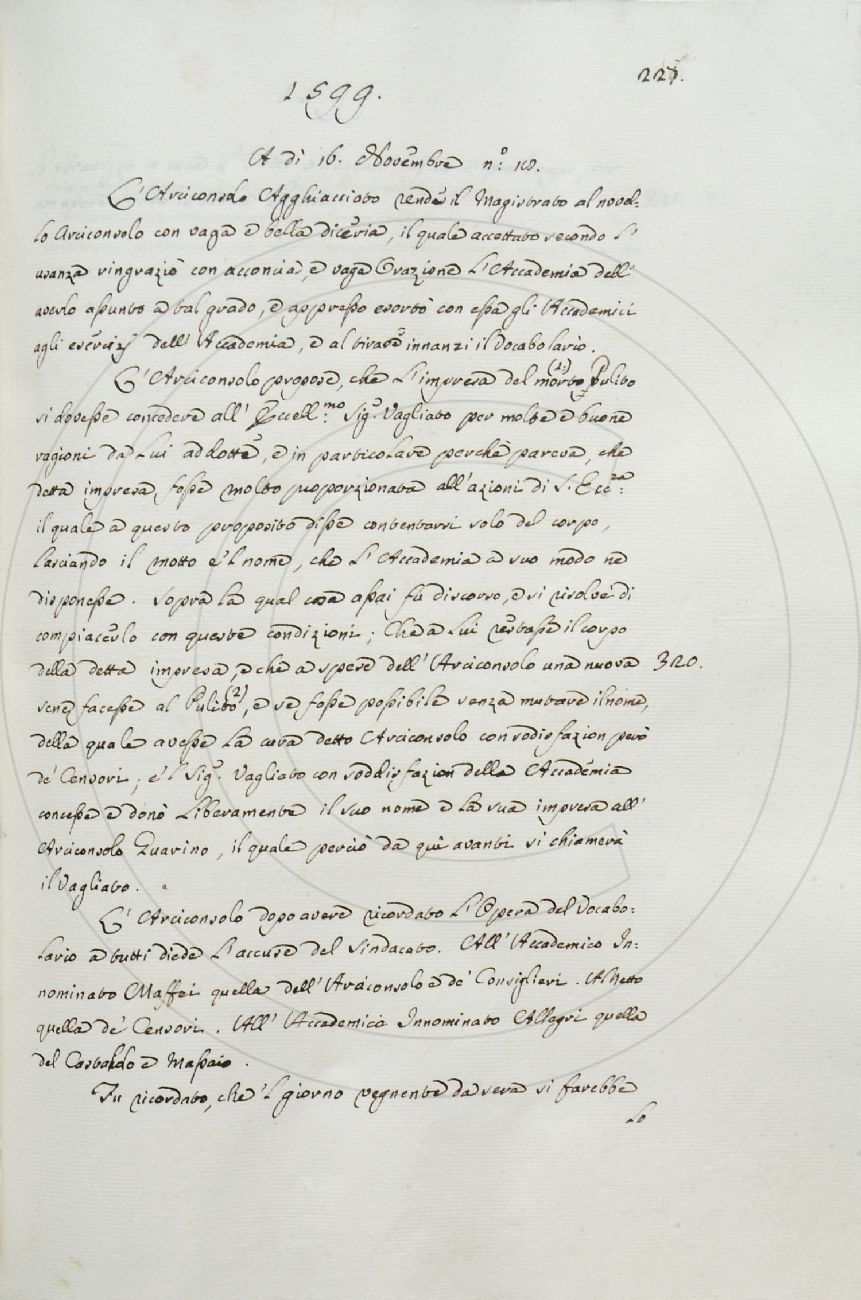 221.
1599.
A dì 16. Novembre n.° 18.
L'Arciconsolo Agghiacciato rende il Magistrato al novel-
lo Arciconsolo con vaga e bella diceria, il quale accettato secondo l'
usanza ringraziò con acconcia, e vaga Orazione l'Accademia dell'
averlo assunto a tal grado, e appresso esortò con essa gli Accademici
agli esercizj dell'Accademia, e al tirare innanzi il Vocabolario.
L'Arciconsolo propose, che l'impresa del morto (1) Pulito
si dovesse concedere all'Eccell.mo Sig.e Vagliato per molte e buone
ragioni da lui addotte, e in particolare perchè pareva, che
detta impresa fosse molto proporzionata all'azioni di S. Ecc.za:
il quale a questo proposito disse contentarsi solo del corpo,
lasciando il motto e 'l nome, che l'Accademia a suo modo ne
disponesse. Sopra la qual cosa assai fu discorso, e si risolvè di
compiacerlo con queste condizioni; Che a lui restasse il corpo
della detta impresa, e che a spese dell'Arciconsolo una nuova 320.
sene facesse al Pulito (2), e se fosse possibile senza mutare il nome,
della quale avesse la cura detto Arciconsolo con sodisfazion però
de' Censori, e 'l Sig.e Vagliato con soddisfazion della Accademia
concesse e donò liberamente il suo nome e la sua impresa all'
Arciconsolo Guarino, il quale perciò da qui avanti si chiamerà
il Vagliato.
L'Arciconsolo dopo avere ricordato l'Opera del Vocabo-
lario a tutti diede l'accuse del Sindacato. All'Accademico In-
nominato Maffei quella dell'Arciconsolo e de' Consiglieri. Al Netto
quella de' Censori. All'Accademico Innominato Allegri quella
del Castaldo e Massaio.
Fu ricordato, che 'l giorno vegnente da sera si farebbe
lo